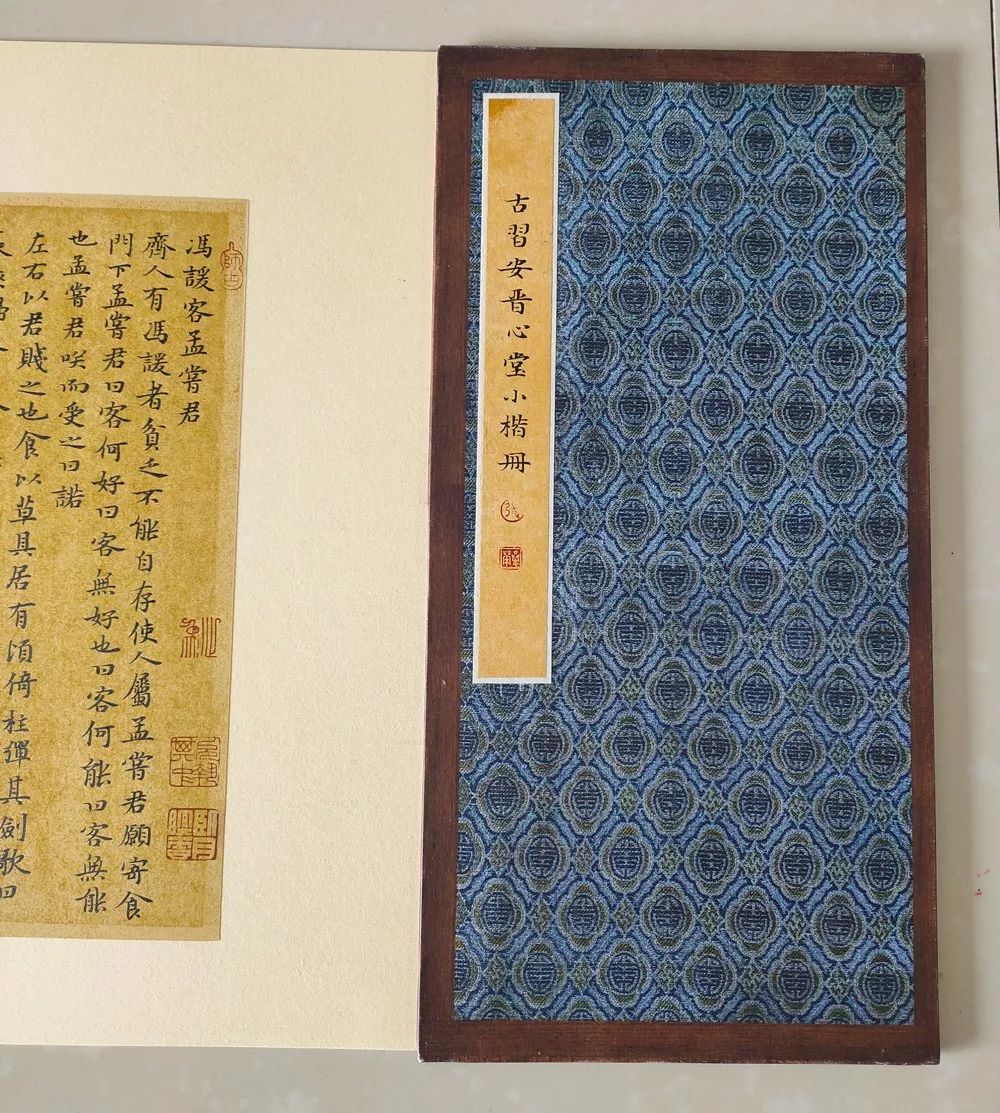 古習安晋心堂小楷冊
馮諼客孟嘗君
齊人有馮諼者貧乏不能自存使人屬孟嘗君願寄食
門下孟嘗君曰客何好曰客無好也曰客何能曰客無能
也孟嘗君咲而受之曰諾
左右以君賤之也食以草具居有頃倚柱彈其劍歌曰